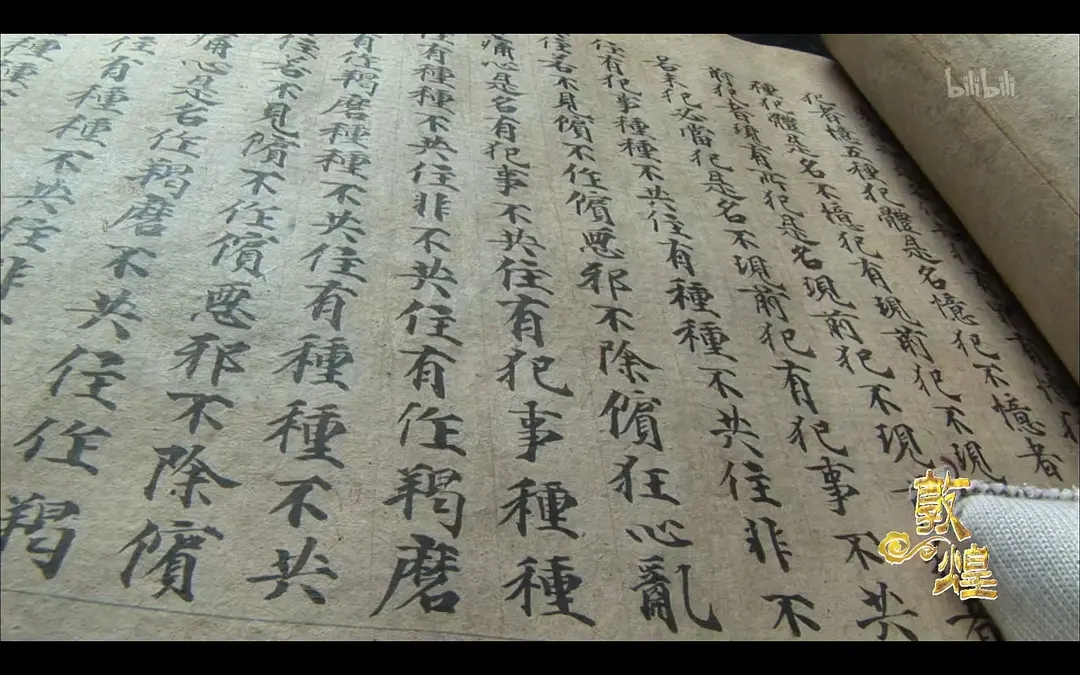 犯者憶五種犯體是名憶犯不憶者
種犯體是名不憶犯有現前犯不現
前犯者現有所犯是名現前犯不現
名未犯必當犯是名不現前犯有犯事不共
住有犯事種種不共住有種種不共住非不
住名不見擯不作擯惡邪不除擯狂心亂
痛心是名有犯事不共住有犯事種種
住有種種不共住非不共住有作羯磨
有作羯磨種種不共住有種種不共
住名不見擯不作擯惡邪不除擯
痛心是名作羯磨不共住作羯
有種種不共住非
種種
敦煌
bilibili